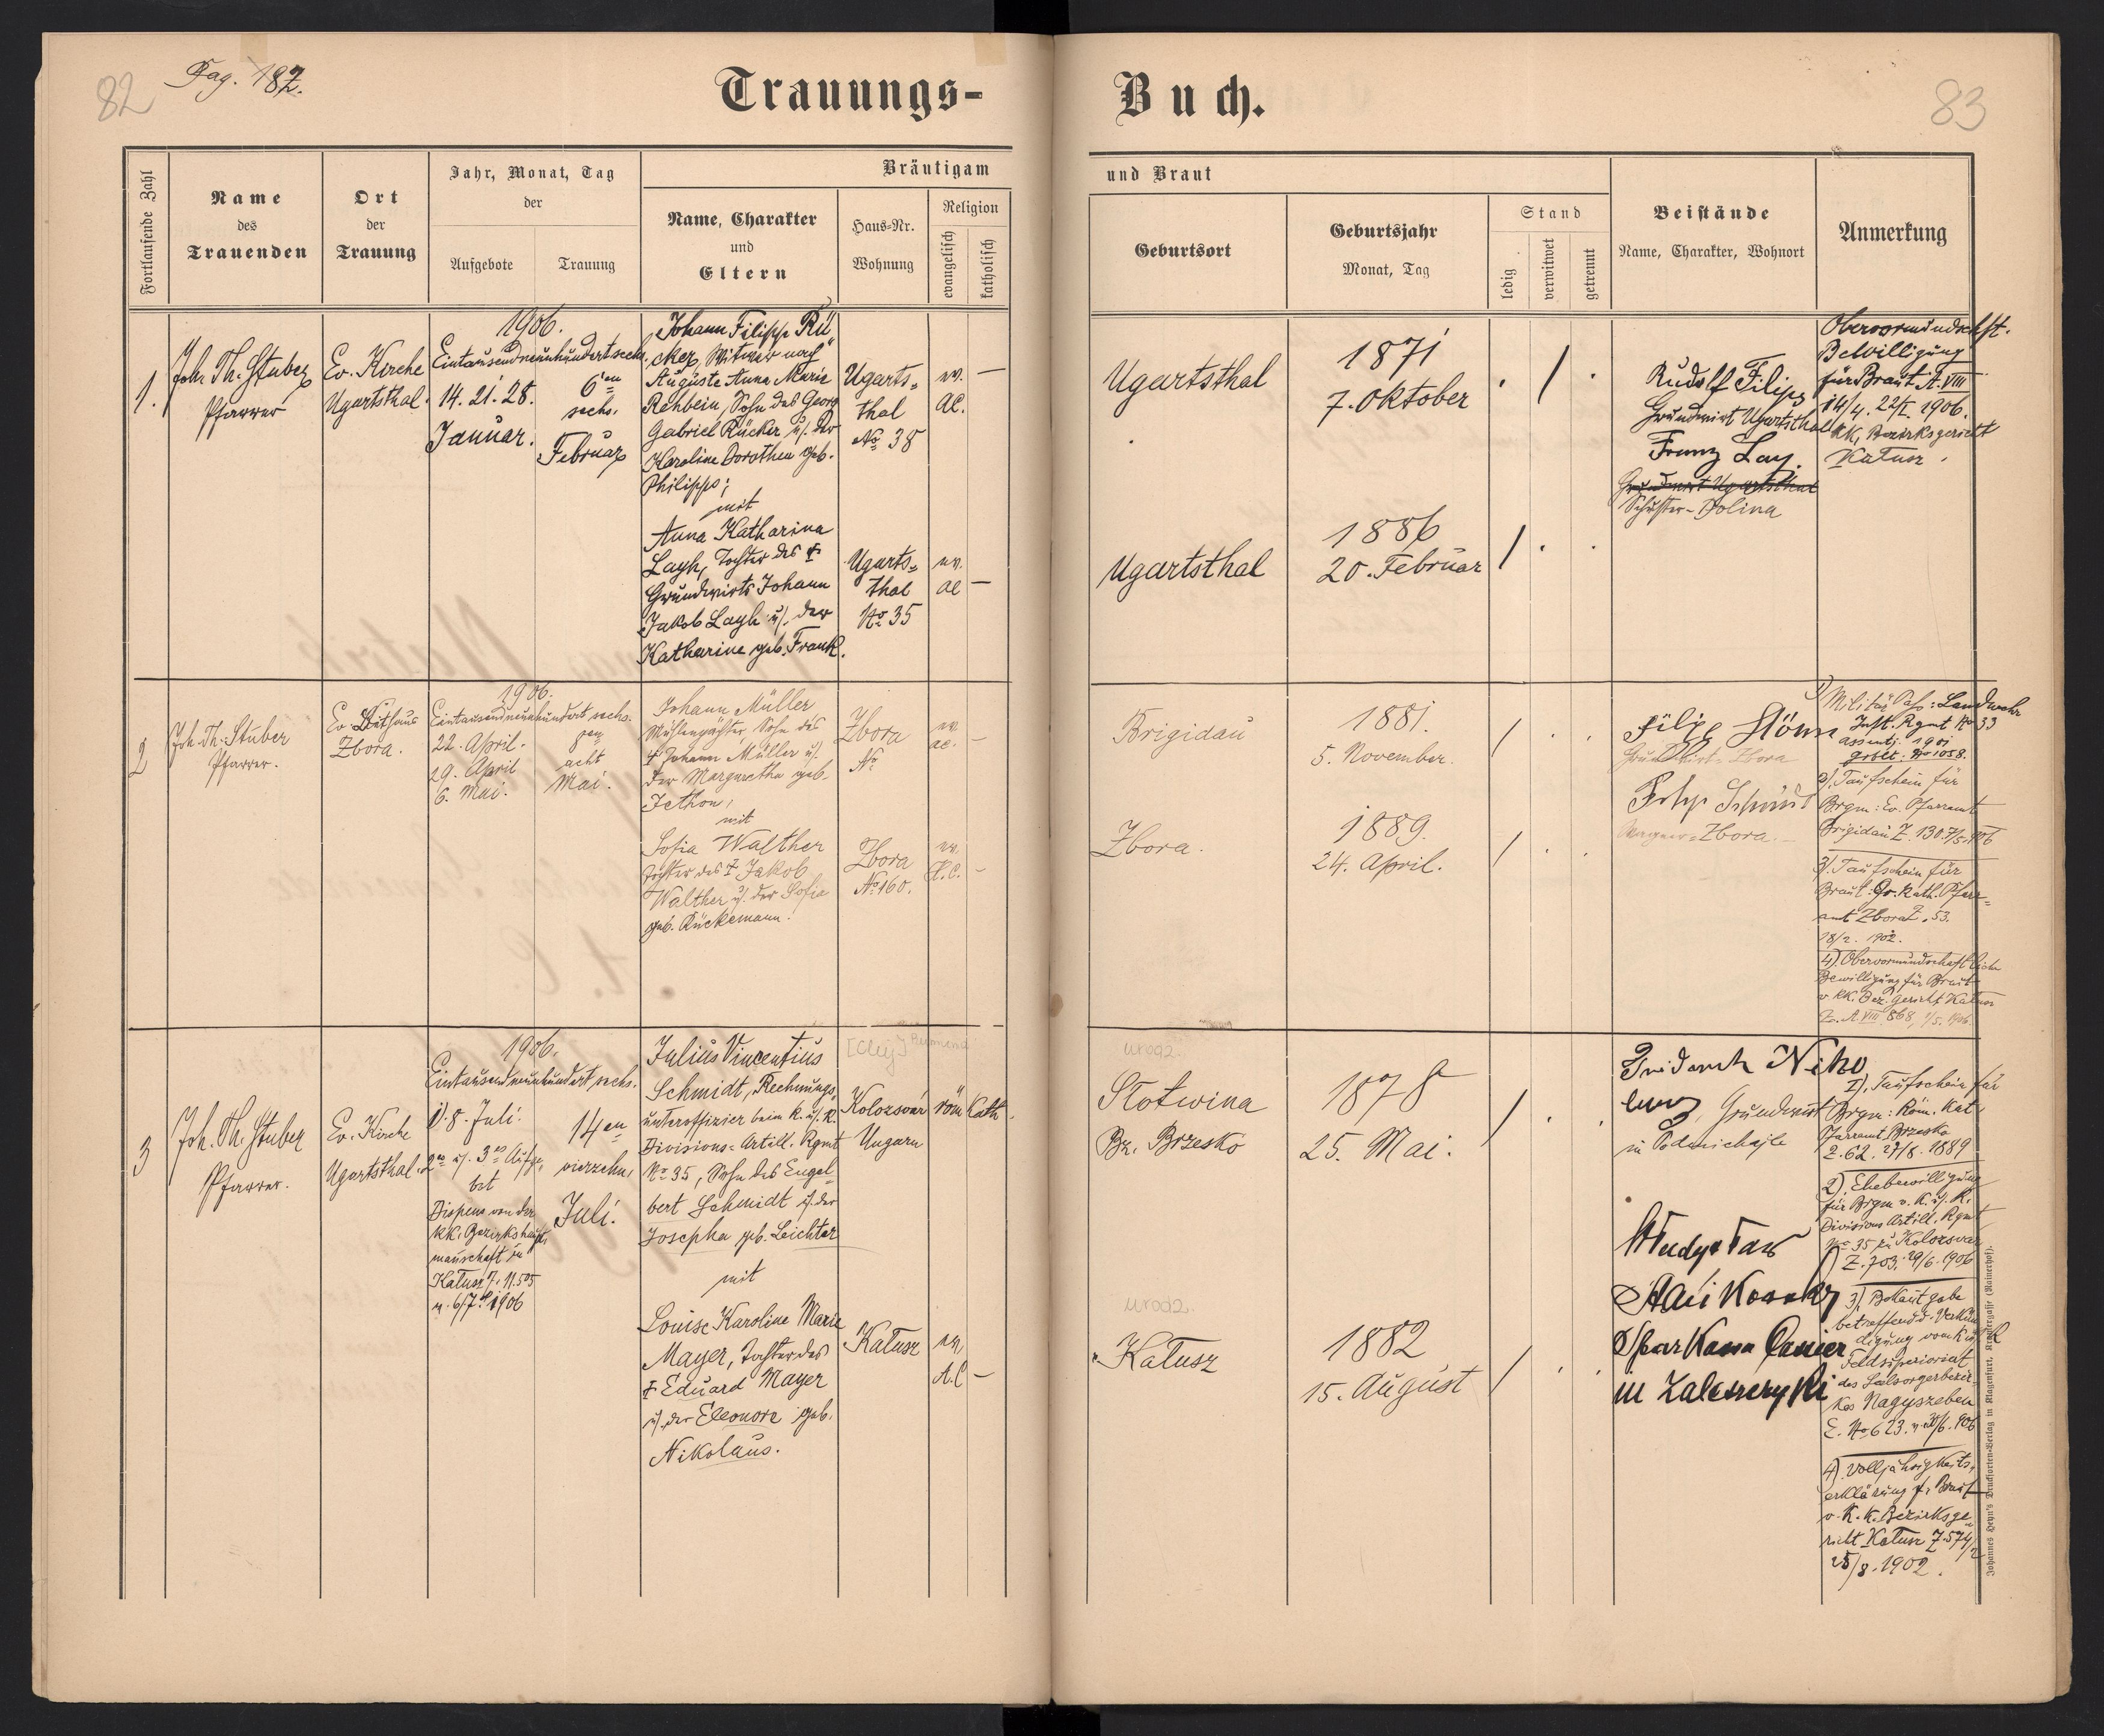 82
Pag. 182.
Trauungs-
Buch.
83
Fortlaufende Zahl
Name
des
Trauenden
Ort
der
Trauung
Jahr, Monat, Tag
der
Aufgebote
Trauung
Bräutigam
Name, Charakter
und
Eltern
Haus-Nr.
Wohnung
Religion
evangelisch
katholisch
und Braut
Geburtsort
Geburtsjahr
Monat, Tag
Stand
ledig
verwitwet
getrennt
Beistände
Name, Charakter, Wohnort
Anmerkung
1.
Joh. Th. Stuber
Pfarrer
Ev. Kirche
Ugartsthal.
1906.
Eintausendneunhundertsechs.
14. 21. 28.
Januar.
6ten
sechs.
Februar
Johann Filipp Rü
cker, Witwer nach
Auguste Anna Marie
Rehbein, Sohn des Georg
Gabriel Rücker u. der
Karoline Dorothea geb.
Philipps;
mit
Anna Katharina
Layh, Tochter des †
Grundwirts Johann
Jakob Layh u. der
Katharine geb. Frank.
Ugarts=
thal
No 38
ev.
AC.
—
Ugarts=
thal
No 35
ev.
AC
—
Ugartsthal
1871
7. Oktober
. / .
Ugartsthal
1886
20. Februar
/ . .
Rudolf Filipp
Grundwirt Ugartsthal
Franz Lay.
Grundwirt Ugartsthal
Schuster - Dolina
Obervormundschft.
Bewilligung
für Braut A. VIII
14/4. 22/I. 1906.
kk. Bezirksgericht
Kałusz.
2
Joh. Th. Stuber
Pfarrer.
Ev. Bethaus
Zbora.
1906.
Eintausendneunhundert sechs.
22. April.
29. April
6. Mai.
8ten
acht
Mai.
Johann Müller
Mühlenpächter, Sohn des
† Johann Müller u.
der Margaretha geb.
Jethon,
mit
Sofia Walther
Tochter des † Jakob
Walther u. der Sofia
geb. Rückemann.
Zbora
No
ev.
ac.
—
Zbora
No 160.
ev.
H.C.
—
Brigidau
1881.
5. November.
/ . .
Zbora.
1889.
24. April.
/ . .
Filipp
Grundwirt - Zbora
Zbora.
1) Militär Pass: Landwehr
Inft. Rgmt No 33
assentj. 1901
No 1058.
2). Taufschein für
Brgm: Ev. Pfarramt
Brigidau Z. 130. 7/5. 906
3). Taufschein für
Braut: Gr. Kath. Pfarr=
amt Zbora Z. 53.
18/2. 1902.
4). Obervormundschaftliche
Bewilligung für Braut
v. kk. Bez. Gericht Kałusz
Z. A VIII 868, 1/5. 1906.
3
Joh. Th. Stuber
Pfarrer.
Ev. Kirche
Ugartsthal.
1906.
Eintausendneunhundert sechs.
1). 8. Juli.
2te u. 3te Aufge=
bot
Dispens von der
kk. Bezirkshaupt=
mannschaft in
Kałusz Z. 11.505
v. 6/7. 1906
14en
vierzehn,
Juli.
Julius Vincentius
Schmidt, Rechnungs,
unteroffizier beim k. u. k.
Divisions-Artill. Rgmt
No 35, Sohn des Engel=
bert Schmidt u. der
Josepha geb. Leichter
mit
Louise Karoline Marie
Mayer, Tochter des
† Eduard Mayer
u. der Eleonore geb.
Nikolaus.
[Cluj]
Kolozsvár
Ungarn
röm Kath.
Kałusz
ev.
A.C
—
urodz.
Słotwina
Bz. Brzesko
1878
25. Mai.
/ . .
urodz.
Kałusz
1882
15. August
/ . .
Friedrich Niko
laus, Grundwirt
in Podmichajle
Władysław
Spar Kassa
in Zaleszczyki
1). Taufschein für
Brgm: Röm. Kat.
Pfarramt Brzesko
Z. 62. 27/8. 1889
2). Ehebewilligung
für Brgm v. K. u. K.
Divisions Artill. Rgmt
No 35 zu Kolozsvar
Z. 703. 29/6. 1906
3) Bekantgabe
betreffend d. Verkün
digung vom k u k
Feldsuperiorat
des Seelsorgerbezir=
kes Nagyszeben
E. No 623. v. 30/6. 906
4) Volljährigkeits,
erklärung f. Braut
v. K. k. Bezirksge=
richt Kałusz Z. 574/2
25/8. 1902.
Johannes Heyn's Drucksorten-Verlag in Klagenfurt, Kramergasse (Rainerhof).